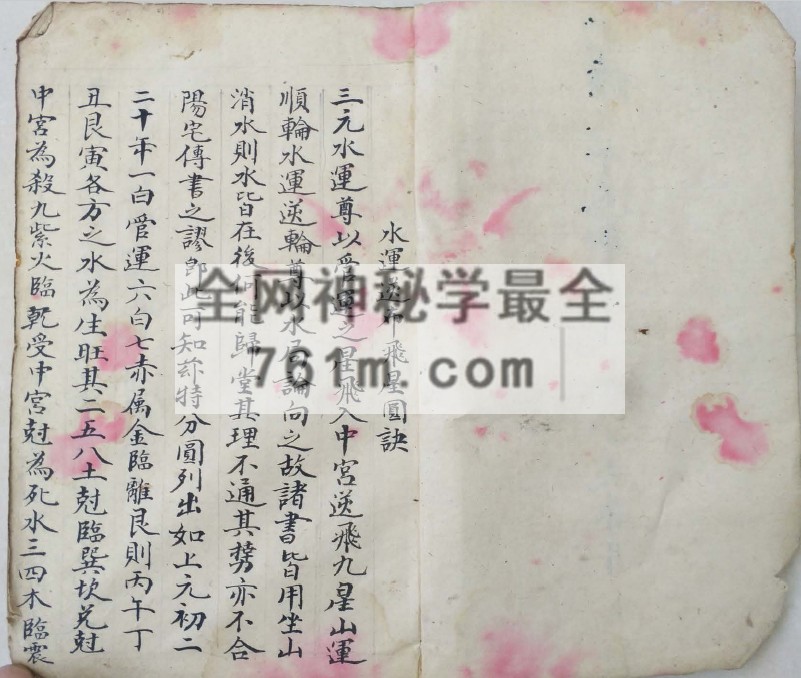 水運逆布飛星圓訣
三元水運尊以管運之星飛入中宮逆飛九星山運
順輪水運逆輪尊以水居論向之故諸書皆用坐山
消水則水皆在後何能歸堂其理不通其勢亦不合
陽宅傳書之謬即此可知茲特分圓列出如上元初二
二十年一白管運六白七赤属金臨離艮則丙午丁
丑艮寅各方之水為生旺其二五八土尅臨巽坎兑尅
中宮為殺九紫火臨乾受中宮尅為死水三四木臨震
全网神秘学最全
761m.com